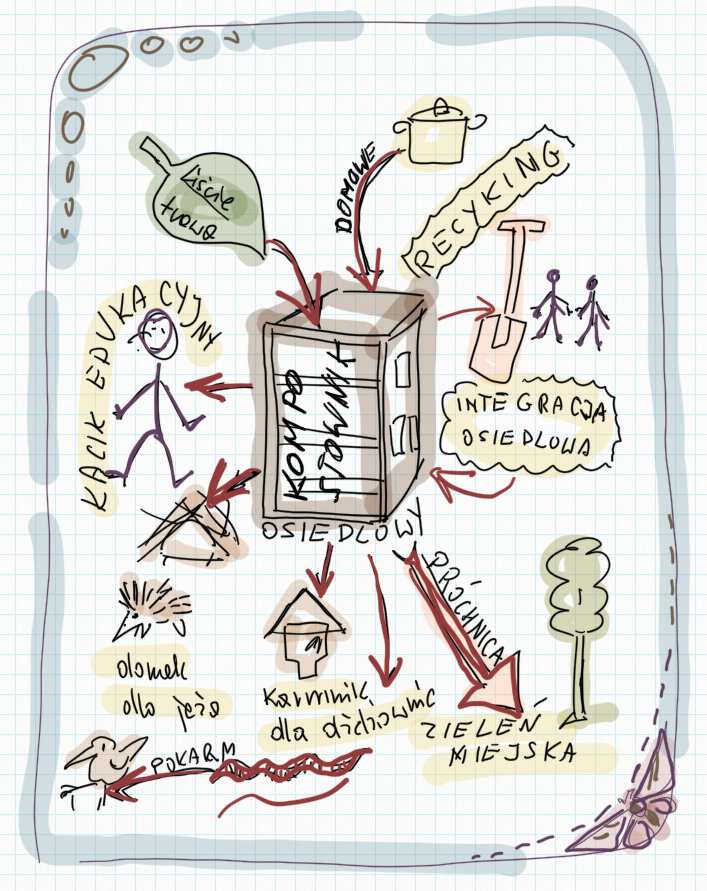 liście
trawa
DOMOWE
RECYKING
KĄCIK EDUKACYJNY
KOMPO
STOWNIK
OSIEDLOWY
INTEGRACJA
OSIEDLOWA
PRÓCHNICA
domek
dla jeża
karmnik
dla dżdżownic
ZIELEŃ
MIEJSKA
POKARM